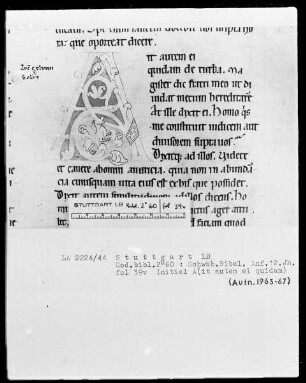 ta: que oporteat dicere.
it autem ei
quidam de turba. Ma
gister dic fratri meo ut di
uidat mecum hereditatē.
At ille dixit ei. Homo q͛s
me constituit iudicem aut
diuisorem supra uos.
Dixitq; ad illos. Videte
et cauete ab omni auaricia. quia non in abunda
cia cuiusquam uita eius est ex his que possidet.
STUTTGART LB Bibl. 2° 60 fol. 39v
LA 2224/44 Stuttgart LB
Cod.bibl.2°60 : Schwäb.Bibel, Anf.12.Jh.
fol 39v Initial A(it autem ei quidam)
(Aufn.1963-67)